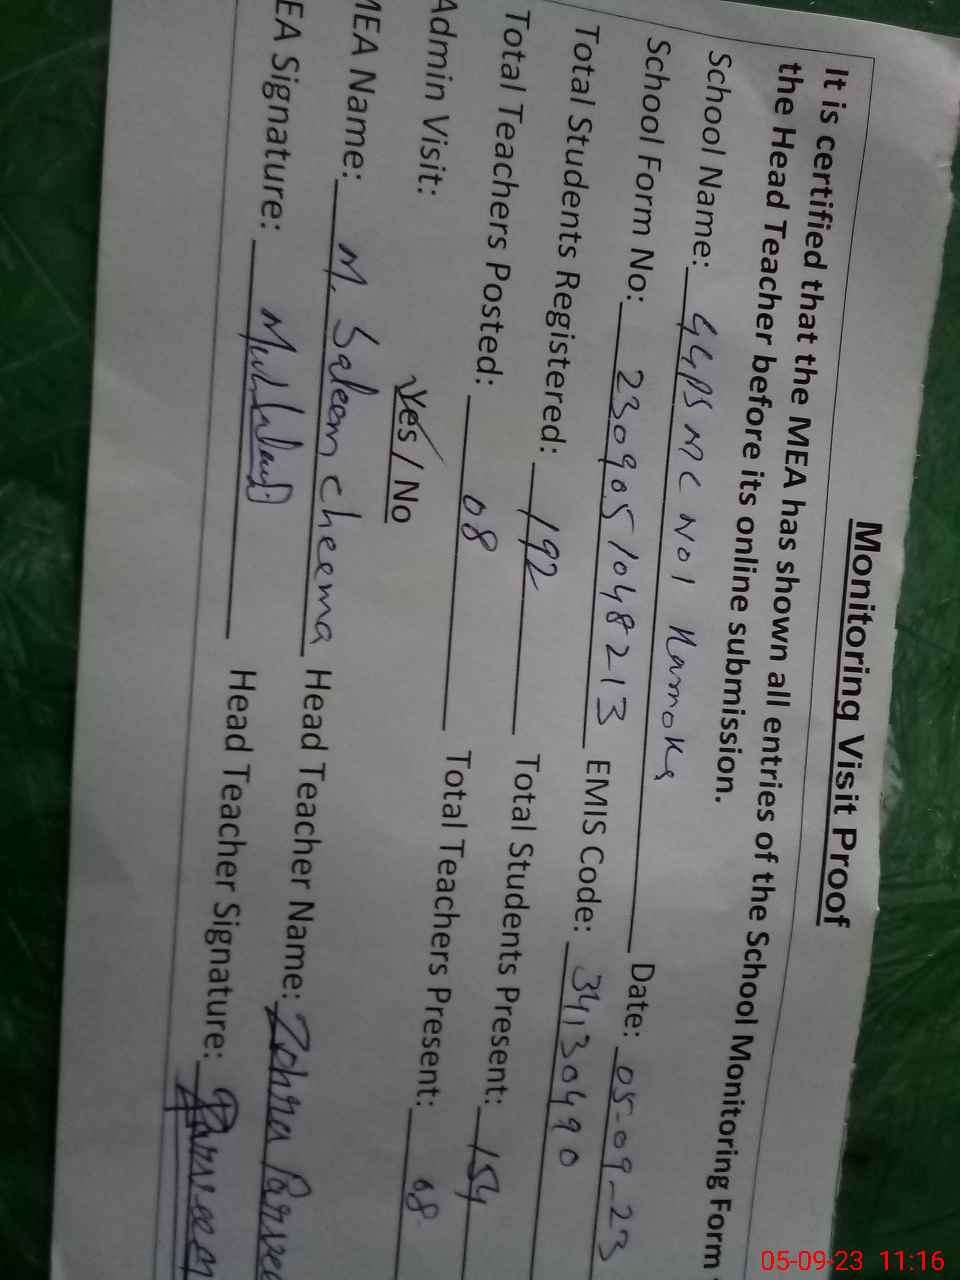 Monitoring Visit Proof
It is certified that the MEA has shown all entries of the School Monitoring Form
the Head Teacher before its online submission.
School Name: GGPS MC NO1 Date: 05-09-23
School Form No: 2309051048213 EMIS Code: 34130490
Total Students Registered: 192 Total Students Present: 154
Total Teachers Posted: 08 Total Teachers Present: 08
Admin Visit: Yes / No
MEA Name: M. Saleem cheema Head Teacher Name: Zohra Parvee
EA Signature: Head Teacher Signature: Parveen
05-09-23 11:16